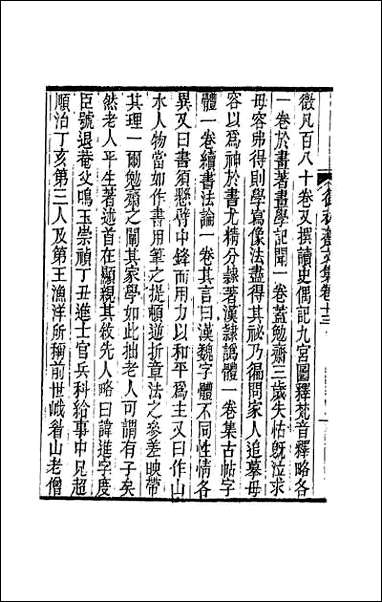 徵凡百八十卷又撰讀史偶記九宮圖釋梵音釋略各
一卷於書著書學記聞一卷蓋勉齋三歲失怙既泣求
母容弗得則學寫像法盡得其祕乃徧問家人追摹母
容以爲神於書尤精分隷著漢隷譌體一卷集古帖字
體一卷續書法論一卷其言曰漢魏字體不同性情各
異又曰書須懸臂中鋒而用力以和平爲主又曰作山
水人物當如作書用筆之提頓逆折章法之參差映帶
其理一爾勉齋之闡其家學如此拙老人可謂有子矣
然老人平生著述首在顯親其敘先人略曰諱進字度
臣號退菴父鳴玉崇禎丁丑進士官兵科給事中兄超
順治丁亥第三人及第王漁洋所稱前世峨眉山老僧
集卷十三